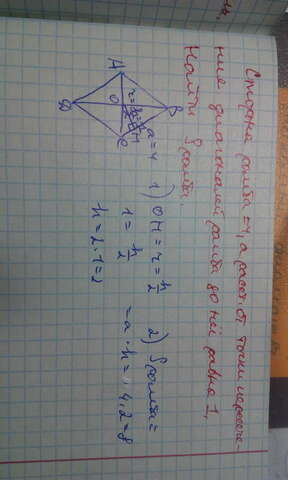 Сторона ромба = 4, а расст. от точки пересече-
ния диагоналей ромба до неё равна 1,
Найти Sромба.
A
B
C
D
O
M
a=4
r=h/2
1) OM = r = h/2
1 = h/2
h = 2 · 1 = 2
2) Sромба =
= a · h = 4 · 2 = 8